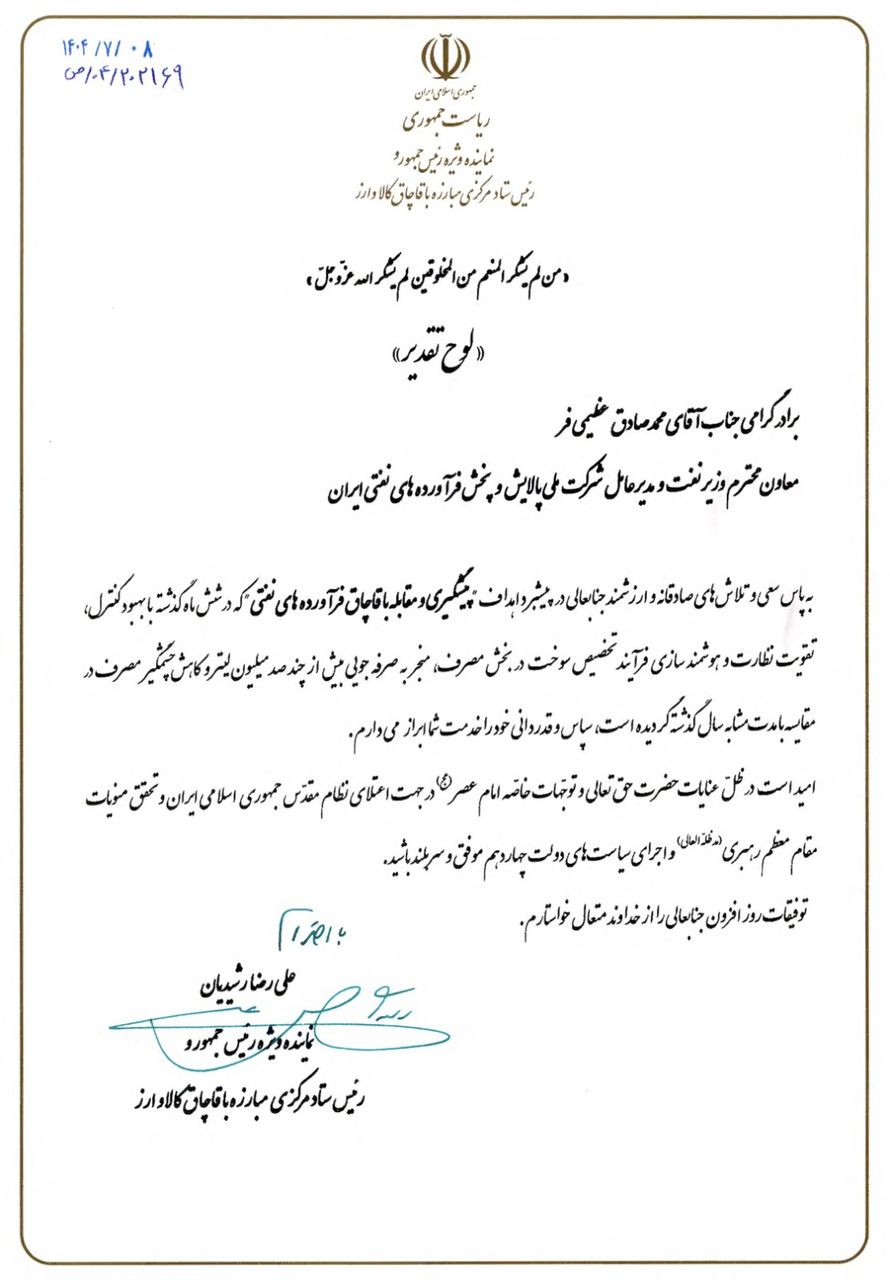 ۱۴۰۴/۷/۰۸
۰۴/۲۰۲۱۶۹/ص
جمهوری اسلامی ایران
ریاست جمهوری
نماینده ویژه رئیس جمهور و
رئیس ستاد مرکزی مبارزه با قاچاق کالا و ارز
«من لم یشکر المنعم من المخلوقین لم یشکر الله عزّوجلّ»
«لوح تقدیر»
برادر گرامی جناب آقای محمدصادق عظیمی فر
معاون محترم وزیر نفت و مدیرعامل شرکت ملی پالایش و پخش فرآورده های نفتی ایران
به پاس سعی و تلاش های صادقانه و ارزشمند جنابعالی در پیشبرد اهداف "پیشگیری و مقابله با قاچاق فرآورده های نفتی" که در شش ماه گذشته با بهبود کنترل،
تقویت نظارت و هوشمند سازی فرآیند تخصیص سوخت در بخش مصرف، منجر به صرفه جویی بیش از چند صد میلیون لیتر و کاهش چشمگیر مصرف در
مقایسه با مدت مشابه سال گذشته گردیده است، سپاس و قدردانی خود را خدمت شما ابراز می دارم.
امید است در ظلّ عنایات حضرت حق تعالی و توجّهات خاصّه امام عصر(عج) در جهت اعتلای نظام مقدّس جمهوری اسلامی ایران و تحقق منویات
مقام معظم رهبری (مدظلّه العالی) و اجرای سیاست های دولت چهاردهم موفق و سربلند باشید.
توفیقات روز افزون جنابعالی را از خداوند متعال خواستارم.
با احترام
علی رضا رشیدیان
نماینده ویژه رئیس جمهور و
رئیس ستاد مرکزی مبارزه با قاچاق کالا و ارز